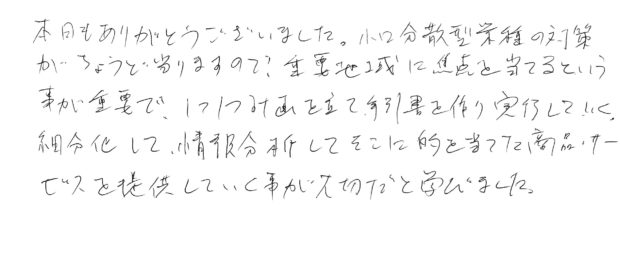 本日もありがとうございました。小口分散型業種の対策
がちょうど当りますので?重要地域に焦点を当てるという
事が重要で、1つ1つ計画を立て手引書を作り実行していく。
細分化して、情報分析してそこに的を当てた商品・サー
ビスを提供していく事が大切だと学びました。